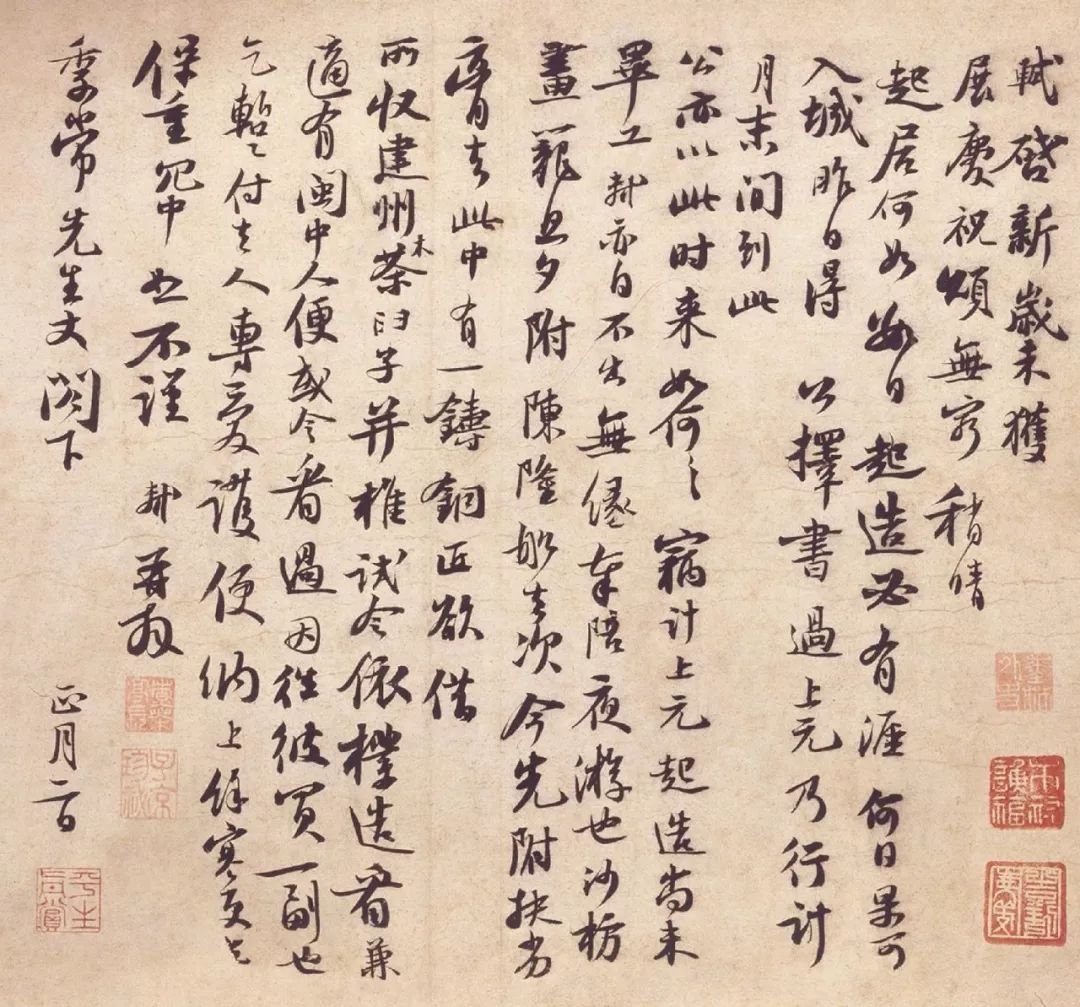 軾啓新歲未獲
展慶祝頌無窮稍晴
起居何如數日起造必有涯何日果可
入城昨日得公擇書過上元乃行計
月末間到此
公亦以此时来如何〻竊计上元起造尚未
畢工軾亦自不出無緣奉陪夜游也沙枋
畫籠旦夕附陳隆船去次今先附扶劣
膏去此中有一鑄銅匠欲借
所收建州木茶臼子并椎試令依樣造看兼
適有閩中人便或令看過因往彼買一副也
乞暫付去人專愛護便納上餘寒更乞
保重冗中恕不謹軾再拜
季常先生丈閣下
正月二日